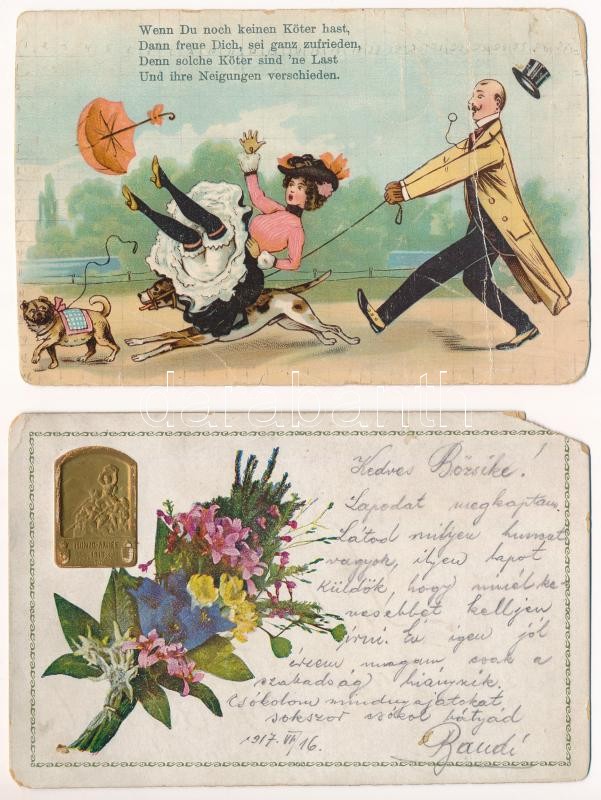 Wenn Du noch keinen Köter hast,
Dann freue Dich, sei ganz zufrieden,
Denn solche Köter sind 'ne Last
Und ihre Neigungen verschieden.
darabanth
Kedves Bözsike!
Lapodat megkaptam.
Látod milyen huncut
vagyok, ilyen lapot
küldök, hogy minél ke-
vesebbet kelljen
írni. Én igen jól
érzem magam, csak a
szabadság hiányzik.
Csókolom mindnyajatokat
sokszor csókol bátyád
1917. VI/16.
Bandi